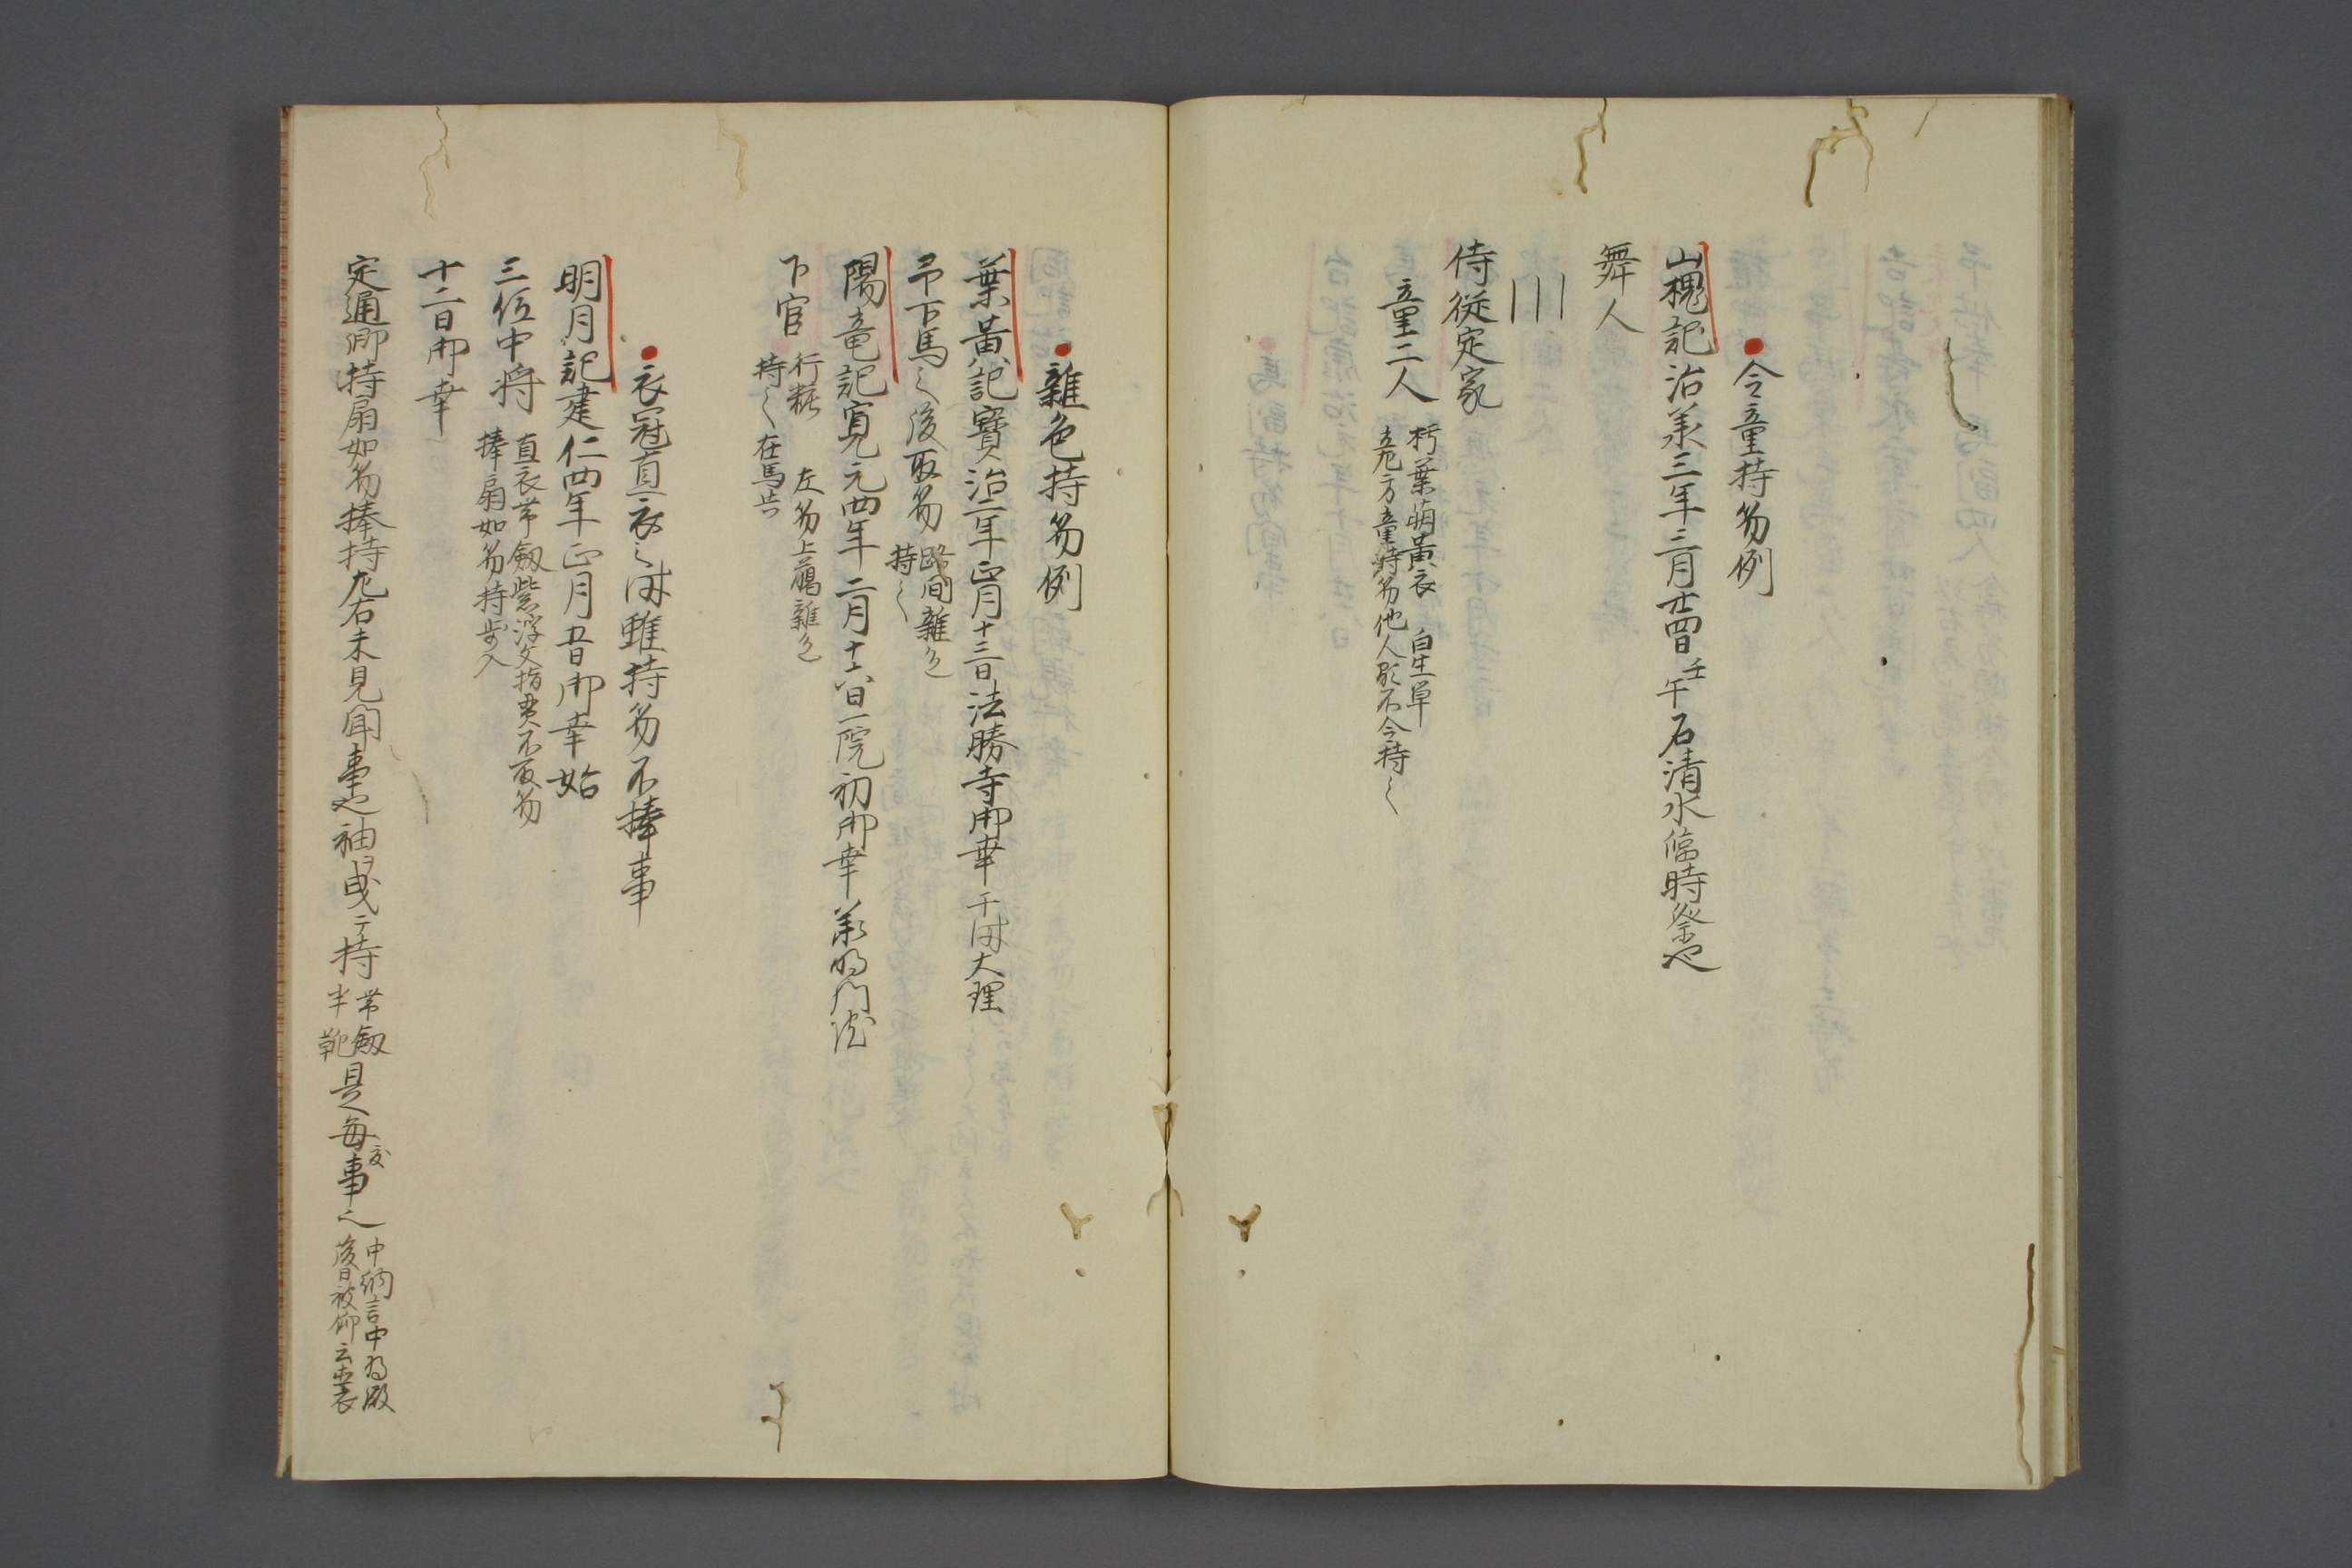 令童持笏例
山槐記治承三年三月廿四日壬午石清水臨時祭也
舞人
侍従定家
童二人
朽葉萌黄衣 白生単
童持笏他人不令持之
雑色持笏例
葉黄記寳治二年正月十三日法勝寺御幸于時大理
下馬之後取笏
路間雑色
持之
陽竜記寛元四年二月十六日一院初御幸
下官
行粧 左笏上﨟雑色
持之 在馬共
衣冠直衣之時雖持笏不捧事
明月記建仁四年正月五日御幸始
三位中将
直衣帯劔紫浮文指貫不取笏
捧扇如笏持歩入
十二日御幸
定通卿持扇如笏捧持左右未見聞事也袖ヲ曳テ持
帯劔
半靴
是毎事也
中納言中将殿
後日被仰云出衣